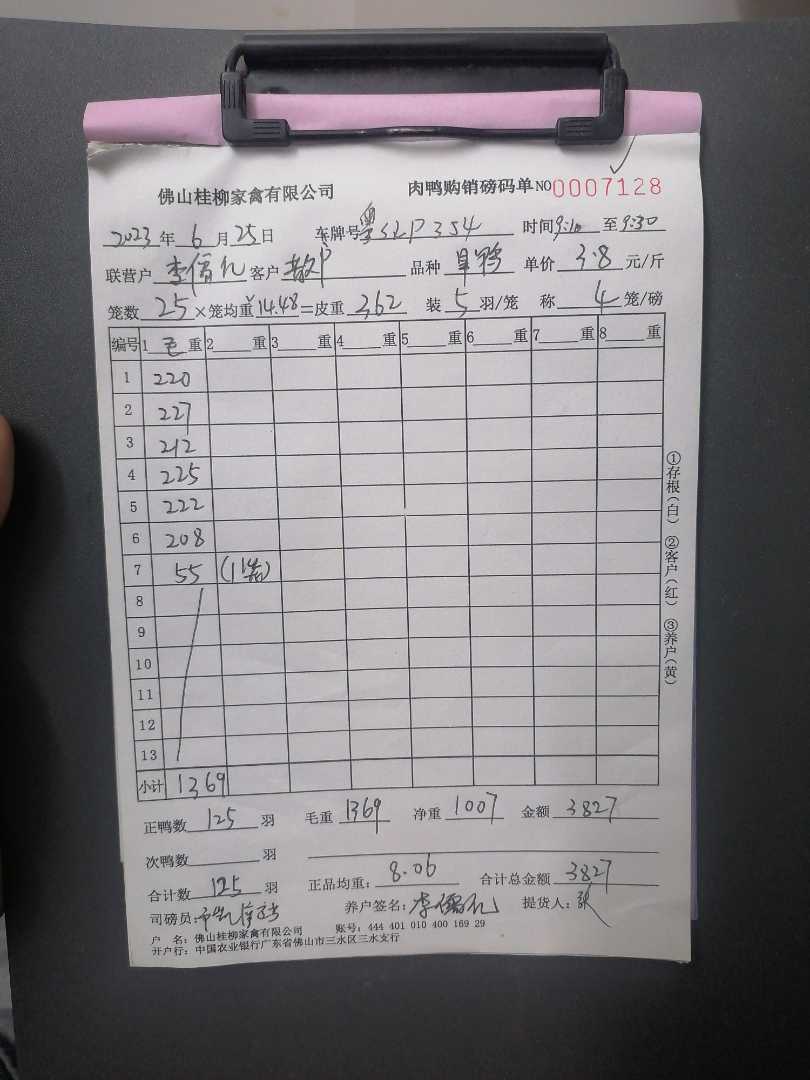 佛山桂柳家禽有限公司 肉鸭购销磅码单 NO 0007128
2023年6月25日 车牌号 粤SLP354 时间9:10至9:30
联营户 李儒礼 客户 散户 品种 单价 3.8 元/斤
笼数 25 ×笼均重 14.48 =皮重 362 装 5 羽/笼 称 4 笼/磅
编号 1 毛 重 2 重 3 重 4 重 5 重 6 重 7 重 8 重
1 220
2 227
3 212
4 225
5 222
6 208
7 55 (1笼)
8
9
10
11
12
13
小计 1369
①存根(白) ②客户(红) ③养户(黄)
正鸭数 125 羽 毛重 1369 净重 1007 金额 3827
次鸭数 羽
合计数 125 羽 正品均重: 8.06 合计总金额 3827
司磅员: 养户签名: 李儒礼 提货人: 张
户 名: 佛山桂柳家禽有限公司 账号: 444 401 010 400 169 29
开户行: 中国农业银行广东省佛山市三水区三水支行